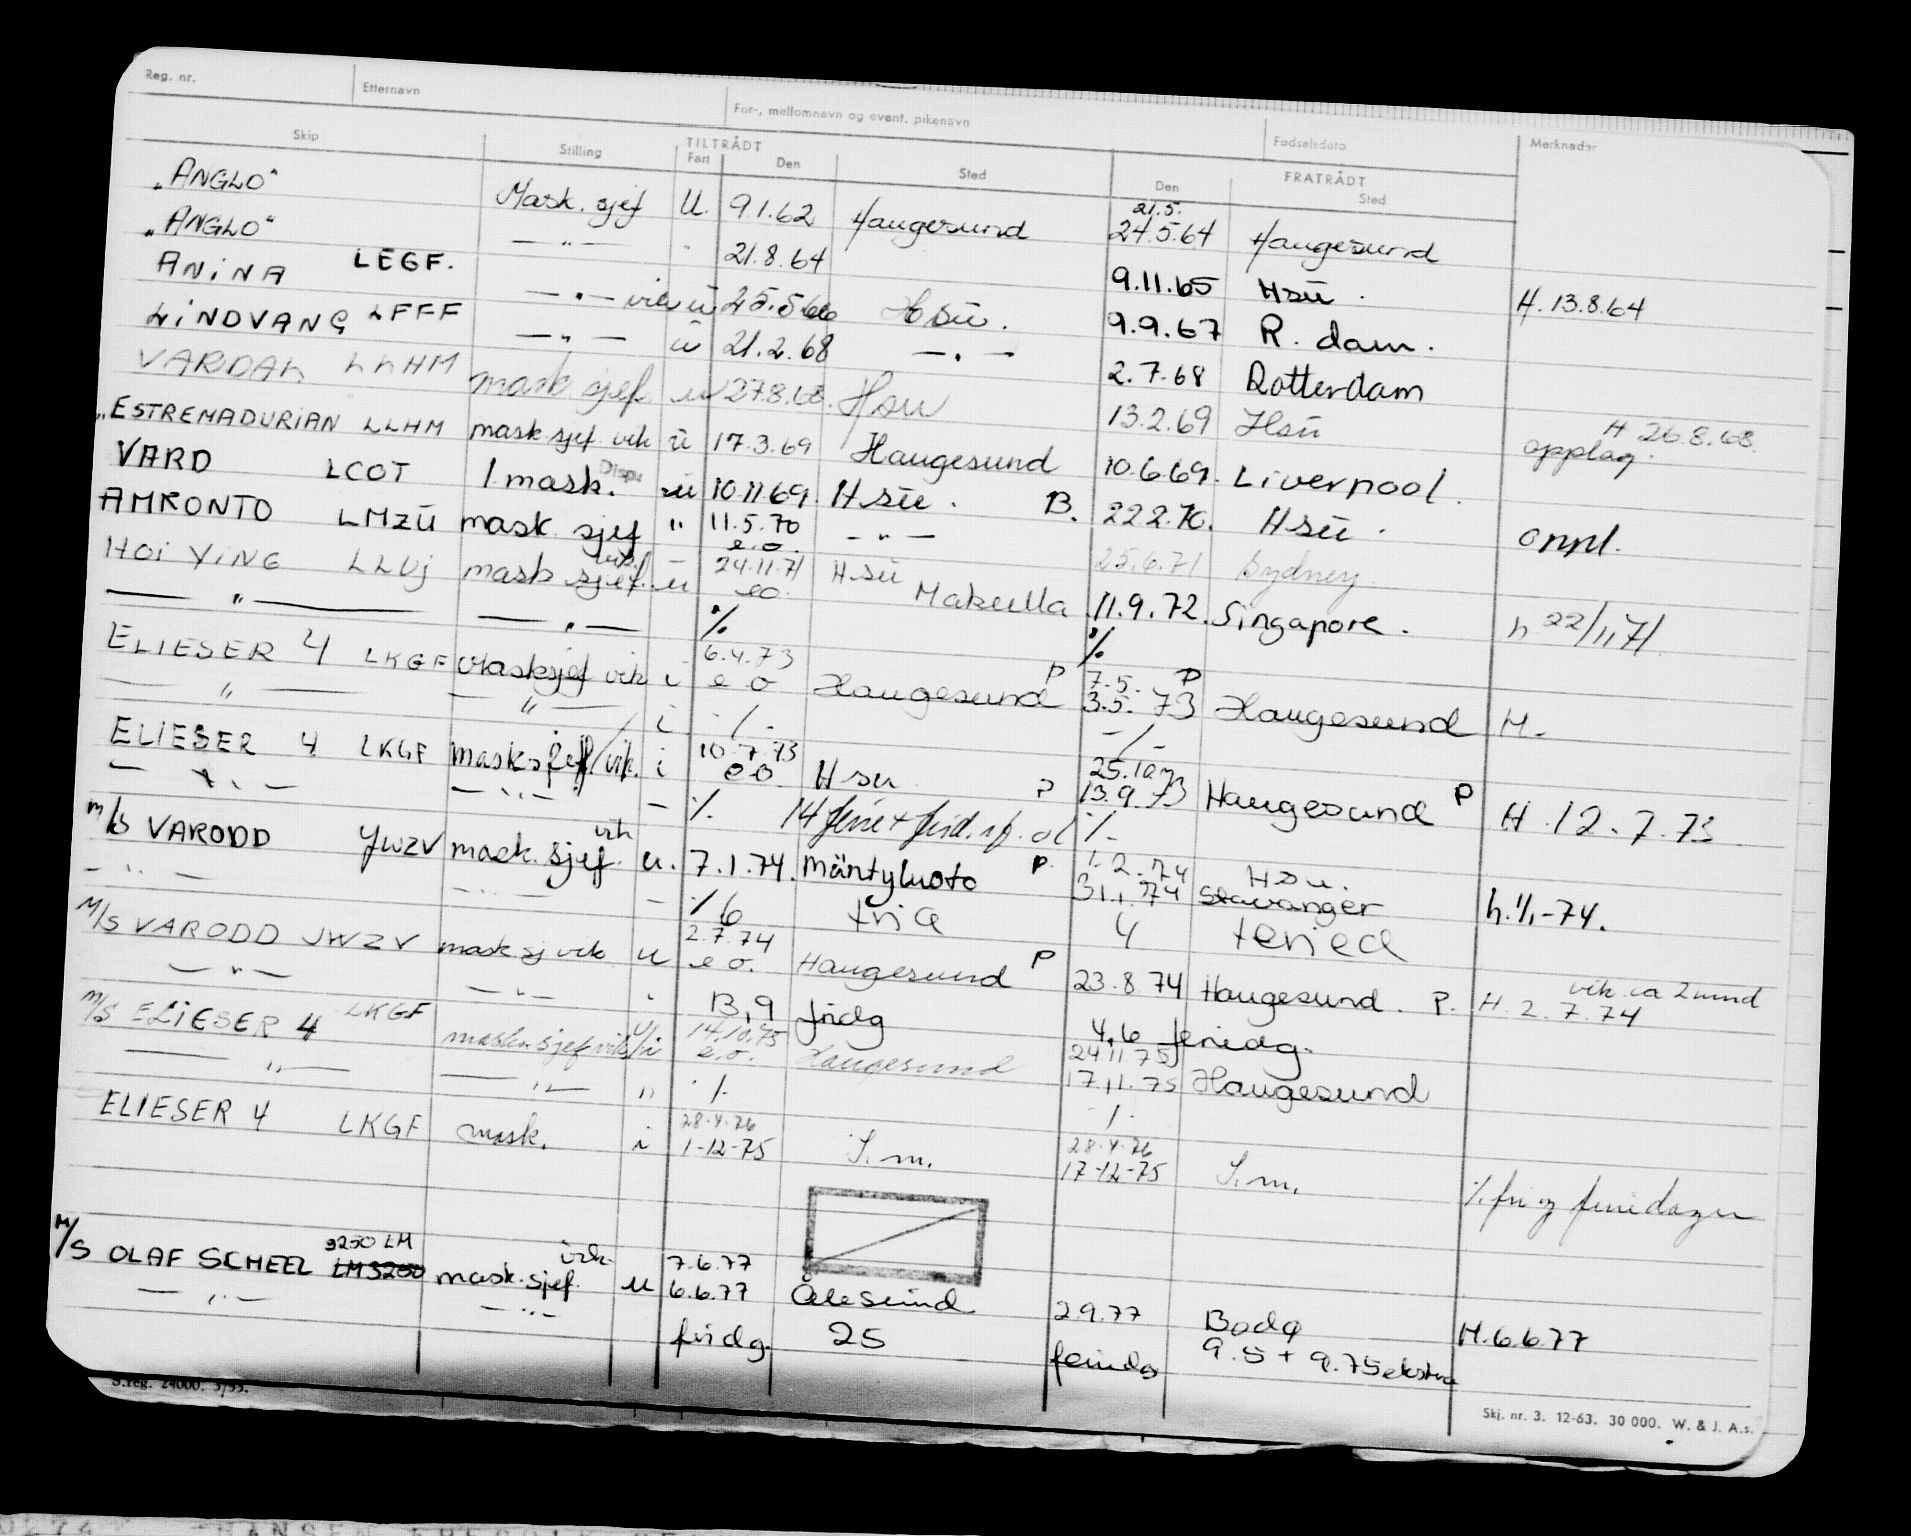 Reg. nr. Etternavn For-, mellomnavn og event. pikenavn Fødselsdato Merknader
Skip Stilling TILTRÅDT Fart Den Sted FRATRÅDT Den Sted
„ANGLO“ Mask. sjef U. 9.1.62 Haugesund 21.5. 24.5.64 Haugesund
„ANGLO“ — " — " 21.8.64 9.11.65 Hsu. H. 13.8.64
ANINA LEGF. — " — vik u 25.5.66 Hsu. 9.9.67 R. dam.
LINDVANG LFFF — " — u 21.2.68 — " — 2.7.68 Rotterdam
VARDAK LLHM mask sjef u 27.8.68. Hsu 13.2.69 Hsu H 26.8.68.
„ESTREMADURIAN LLHM mask sjef vik u 17.3.69 Haugesund 10.6.69. Liverpool. opplag.
VARD LCOT 1 mask. Disp. u 10.11.69. Hsu. B. 22.2.70. Hsu. oppl.
AMRONTO LMZU mask sjef " 11.5.70 e.o. — " — 25.6.71 Sydney
HOI YING LLUJ mask sjef. vik. u 24.11.71 eo. Hsu Makulla 11.9.72. Singapore. h 22/11 71
— " — — " — ./. ./.
ELIESER 4 LKGF Masksjef vik i 6.4.73 e o Haugesund P 7.5. 3.5. 73 P Haugesund H.
— " — — " — i -/- -/-
ELIESER 4 LKGF mask sjef/vik. i 10.7.73 eo Hsu P 25.10 13.9.73 Haugesund P H. 12.7.73
— " — — " — — ./. 14 ferie + ./.
m/s VARODD JWZV mask. sjef. vik u. 7.1.74. Mäntyluoto P. 1.2.74 31.1.74 Hsu. Stavanger h. 1/1-74.
— " — — " — — ./. 6 fria 4 feried
M/S VARODD JWZV mask sj vik u 2.7.74 e o. Haugesund P 23.8.74 Haugesund. P. vik ca 2 mnd H. 2.7.74
— " — — " — " 13,9 fridg 4.6 feriedg.
M/S ELIESER 4 LKGF maskn.sjef vik u/i 14.10.75 e.o. Haugesund 24.11.75 17.11.75 Haugesund
— " — — " — " ./. ./.
ELIESER 4 LKGF mask. i 28.4.76 1-12-75 S.m. 28.4.76 17-12-75 S.m. ./. fri og feriedager
M/S OLAF SCHEEL 3250 LM LM3250 mask. sjef. vik u 7.6.77 6.6.77 Ålesund 2.9.77 Bodø H. 6.6.77
— " — — " — fridg. 25 feriedg 9.5 + 9.75 ekstra
S.reg. 24000. 3/55.
Skj. nr. 3. 12-63. 30 000. W. & J. A.s.